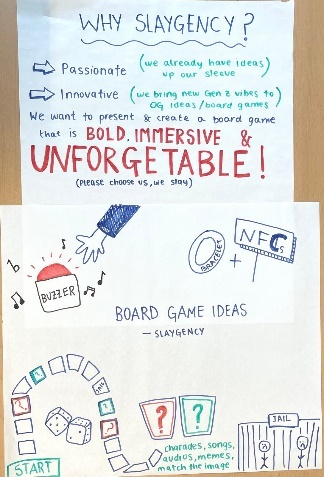 WHY SLAYGENCY?
Passionate (we already have ideas up our sleeve)
Innovative (we bring new Gen Z vibes to OG ideas/board games)
We want to present & create a board game
that is BOLD, IMMERSIVE &
UNFORGETABLE!
(Please choose us, we slay)
BUZZER
BRACELET
+
NFCs
BOARD GAME IDEAS
— SLAYGENCY
? ?
charades, songs,
audios, memes,
match the image
JAIL
START